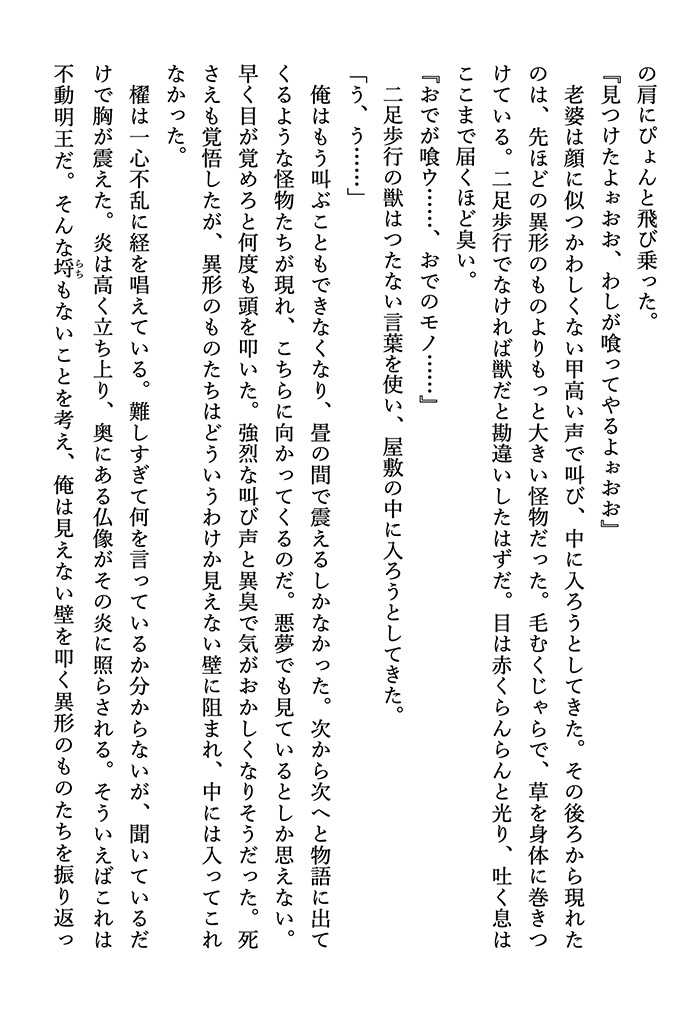 の肩にぴょんと飛び乗った。
『見つけたよぉおお、わしが喰ってやるよぉおお』
　老婆は顔に似つかわしくない甲高い声で叫び、中に入ろうとしてきた。その後ろから現れた
のは、先ほどの異形のものよりもっと大きい怪物だった。毛むくじゃらで、草を身体に巻きつ
けている。二足歩行でなければ獣だと勘違いしたはずだ。目は赤くらんらんと光り、吐く息は
ここまで届くほど臭い。
『おでが喰ウ……、おでのモノ……』
　二足歩行の獣はつたない言葉を使い、屋敷の中に入ろうとしてきた。
「う、う……」
　俺はもう叫ぶこともできなくなり、畳の間で震えるしかなかった。次から次へと物語に出て
くるような怪物たちが現れ、こちらに向かってくるのだ。悪夢でも見ているとしか思えない。
早く目が覚めろと何度も頭を叩いた。強烈な叫び声と異臭で気がおかしくなりそうだった。死
さえも覚悟したが、異形のものたちはどういうわけか見えない壁に阻まれ、中には入ってこれ
なかった。
　櫂は一心不乱に経を唱えている。難しすぎて何を言っているか分からないが、聞いているだ
けで胸が震えた。炎は高く立ち上り、奥にある仏像がその炎に照らされる。そういえばこれは
不動明王だ。そんな埒もないことを考え、俺は見えない壁を叩く異形のものたちを振り返っ
らち